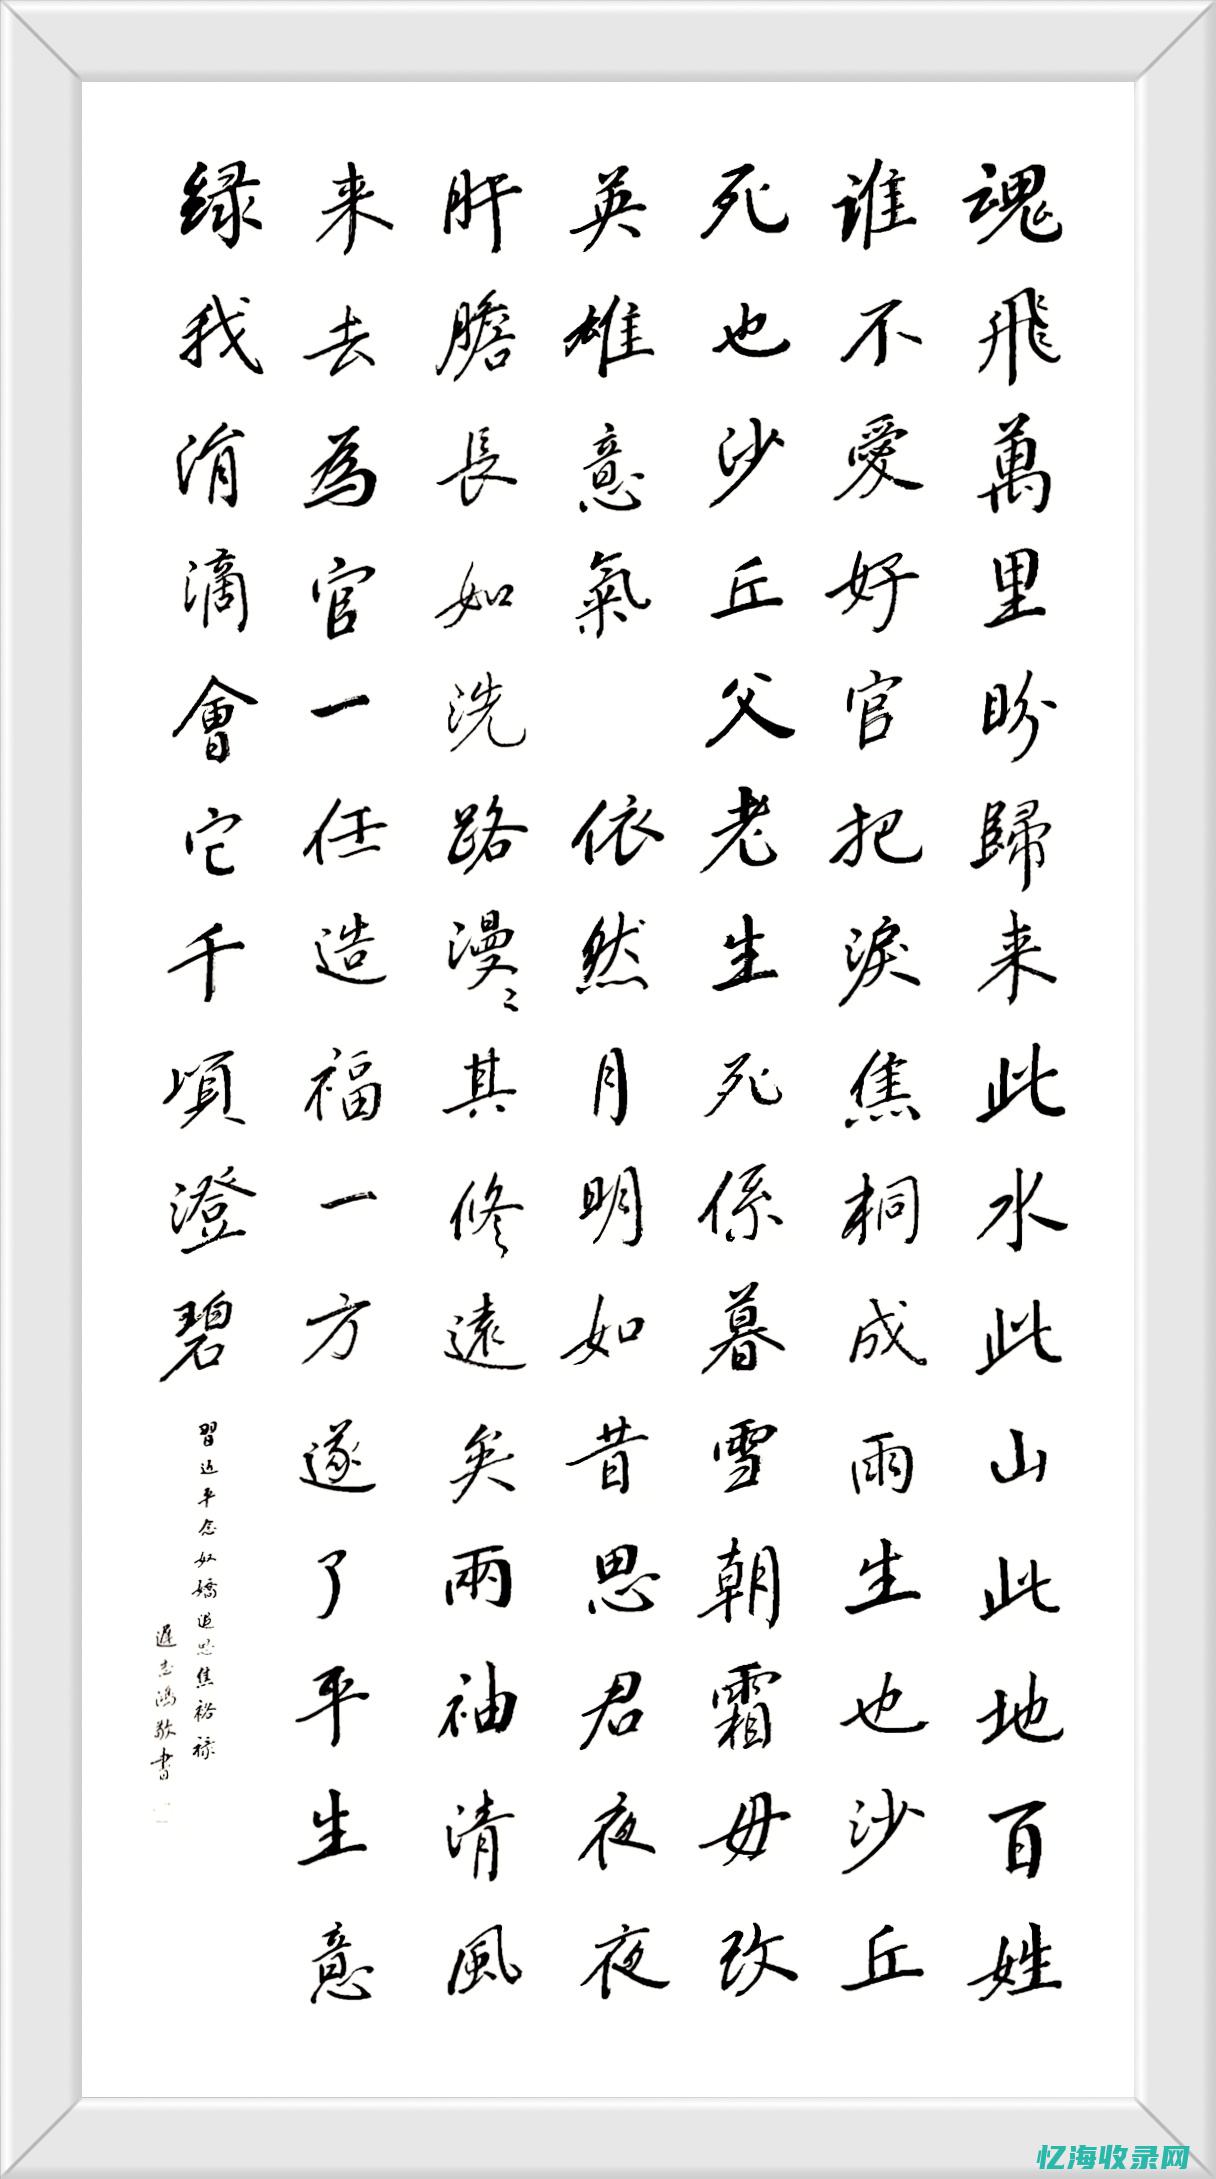 魂飛萬里盼歸来此水此山此地百姓
谁不愛好官把淚焦桐成雨生也沙丘
死也沙丘父老生死係暮雪朝霜毋改
英雄意氣 依然月明如昔思君夜夜
肝膽長如洗路漫〻其修遠矣兩袖清風
来去為官一任造福一方遂了平生意
绿我涓滴會它千頃澄碧
習近平念奴嬌追思焦裕禄
遲志鴻敬書
忆海收录网